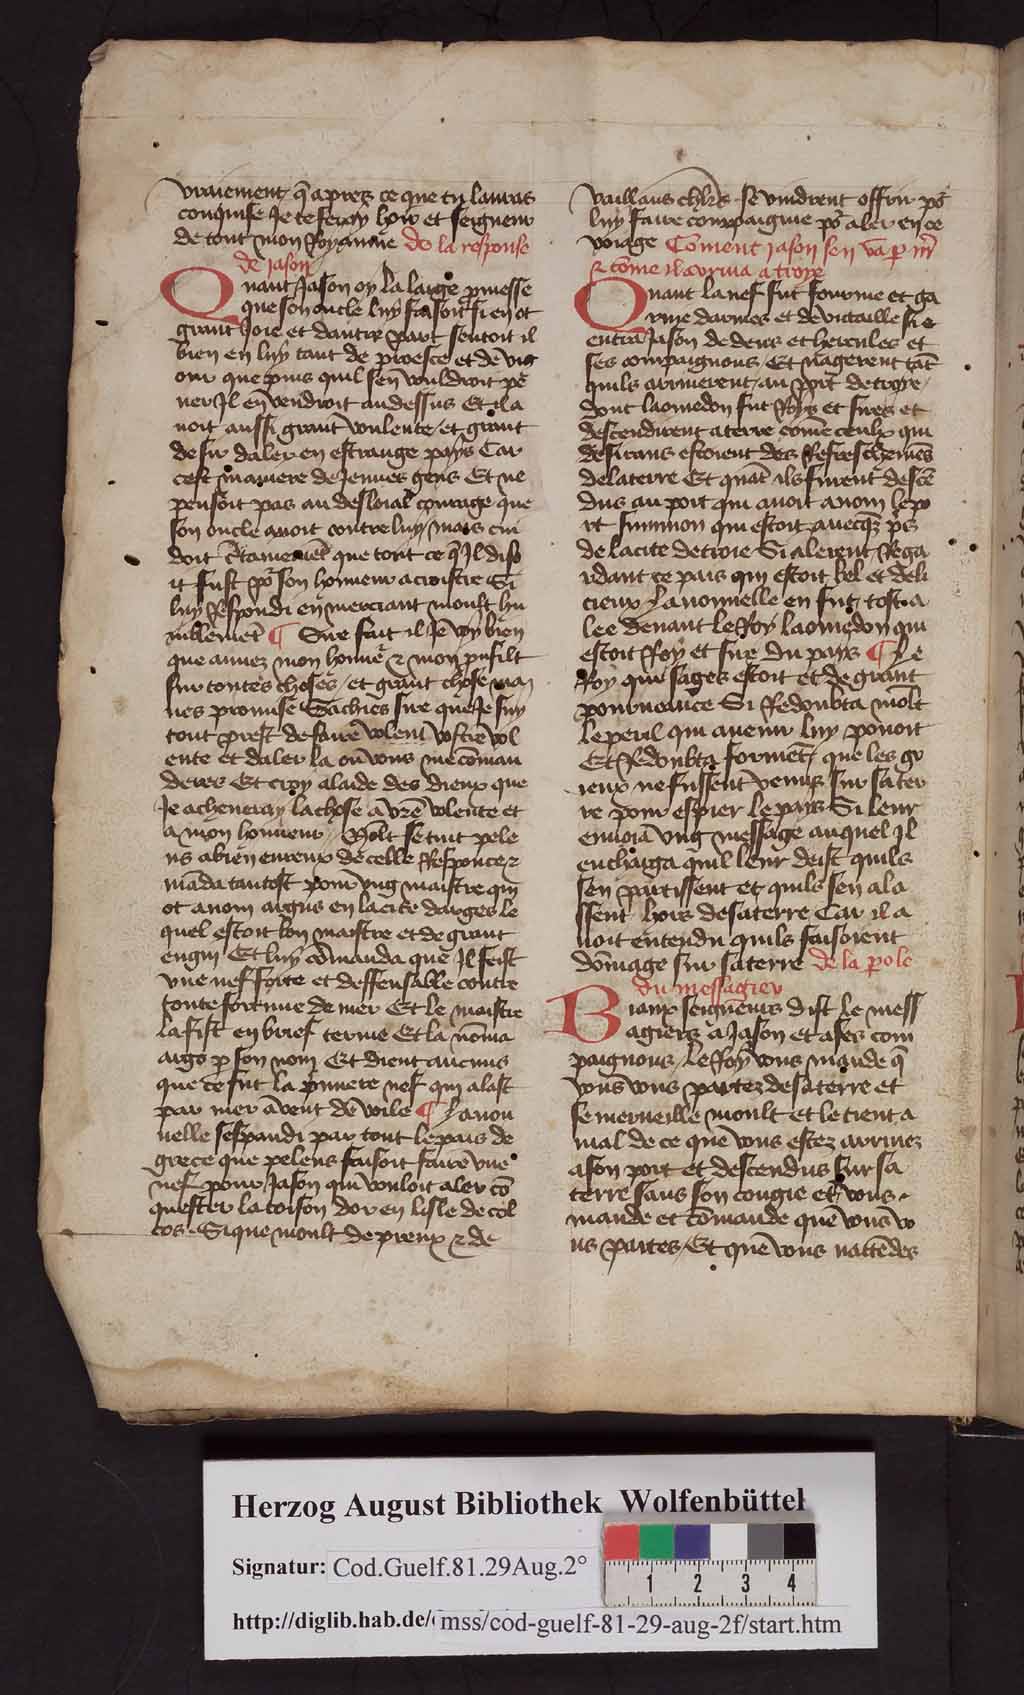 vraiement q̃ aprez ce que tu lauras
conquise Je te feray hoir et seigneur
de tout mon Royaume de la response
de jason
Quant Jason oy la large p̃messe
que son oncle luy faisoit si en ot
grant Joie et dautre part sentoit il
bien en luy tant de proesce et de vig
our que puis quil sen vouldroit pe
ner Il en vendroit au dessus Et il a
uoit aussi grant voulente et grant
desir daler en estrange pays Car
cest maniere de Jeunes gens Et ne
pensoit pas au desloial courage que
son oncle auoit contre luy mais cui
doit c̃tainemẽt que tout ce q̃ Il diso
it fust po᷑ son honneur acroistre Si
luy Respondi en merciant moult hu
mblemẽt ¶ Sire fait il Je voy bien
que amez mon honne᷑ ⁊ mon proufilt
sur toutes choses / et grant chose ma
ues promise Sachies sire que Je suy
tout prest de faire volent̃ vostre vol
ente et daler la ou vous me cõman
derez Et croy alaide des dieux que
Je acheueray la chose a vr̃e volente et
a mon honneur / Mõlt se tint pele
us a bien eureux de celle Responce ⁊
mãda tantost pour ung maistre qui
ot a nom argus en la cite darges le
quel estoit bon maistre et de grant
engin Et luy cõmanda que Il feist
vne nef forte et deffensable contre
toute fortune de mer Et le maistre
la fist en brief terme Et la nõma
argo p̲ son nom Et dient aucuns
que ce fut la p̃miere nef qui alast
par mer a vent de voile ¶ La nou
uelle sespandi par tout le pais de
grece que peleus faisoit faire vne
nef pour Jason qui vouloit aler cõ
quester la toison dor en lisle de col
cos · Si que moult de preux ⁊ de
vaillans chl̃rs · se vindrent offrir po᷑
luy faire compaignie po᷑ aler en ce
voiage Cõment jason sen va p̲ m᷑
⁊ cõme il arriua a troye
Quant la nef fut fournie et ga
rnie darmes et de victaille si e
entra Jason de dens et hercules et
ses compaignons / Et nagerent tãt
quils arriuerent / au port de troye /
dont laomedon fut Roys et sires et
descendirent a terre cõme ceulx qui
desirans estoient des Refreschemẽs
de la terre Et quãt ils furent descẽ
dus au port qui auoit a nom le po
rt simmon qui estoit auecq̃z pres
de la cite de troie Si alerent Rega
rdant ce pais qui estoit bel et deli
cieux La nouuelle en fut / tost a
lee deuant le Roy laomedon qui
estoit Roy et sire du pays ¶ Le
Roy qui sages estoit et de grant
pourueance Si Redoubta mõlt
le peril qui auenir luy pouoit
Et Redoubta formẽt / que les gr
ieux ne fussent venus sur sa ter
re pour espier le pays Si leur
enuoia ung message auquel Il
encharga quil leur deist quils
sen partissent et quils sen ala
ssent hors de sa terre Car il a
uoit entendu quils faisoient
dõmage sur sa terre de la p̲ole
du messagier
Biaux seigneurs dist le mess
agiers a Jason et a ses com
paignons / le Roy vous mande q̃
vous vous partez de sa terre et
se merueille moult et le tient a
mal de ce que vous estez arriuez
a son port et descendus sur sa
terre sans son congie et vous
mande et cõmande que vous vo
us partes / Et que vous nattẽdes
Herzog August Bibliothek Wolfenbüttel
Signatur: Cod.Guelf.81.29Aug.2°
1 2 3 4
http://diglib.hab.de/mss/cod-guelf-81-29-aug-2f/start.htm